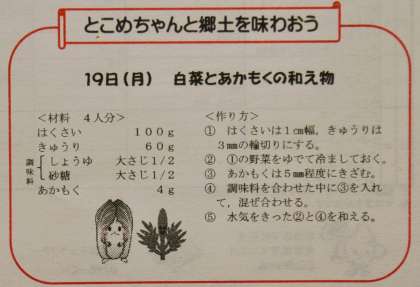 とこめちゃんと郷土を味わおう
19日(月)　白菜とあかもくの和え物
＜材料　4人分＞
はくさい　100g
きゅうり　60g
調味料
しょうゆ　大さじ1/2
砂糖　大さじ1/2
あかもく　4g
＜作り方＞
①　はくさいは1cm幅，きゅうりは
3mmの輪切りにする。
②　①の野菜をゆでて冷ましておく。
③　あかもくは5mm程度にきざむ。
④　調味料を合わせた中に③を入れ
て，混ぜ合わせる。
⑤　水気をきった②と④を和える。